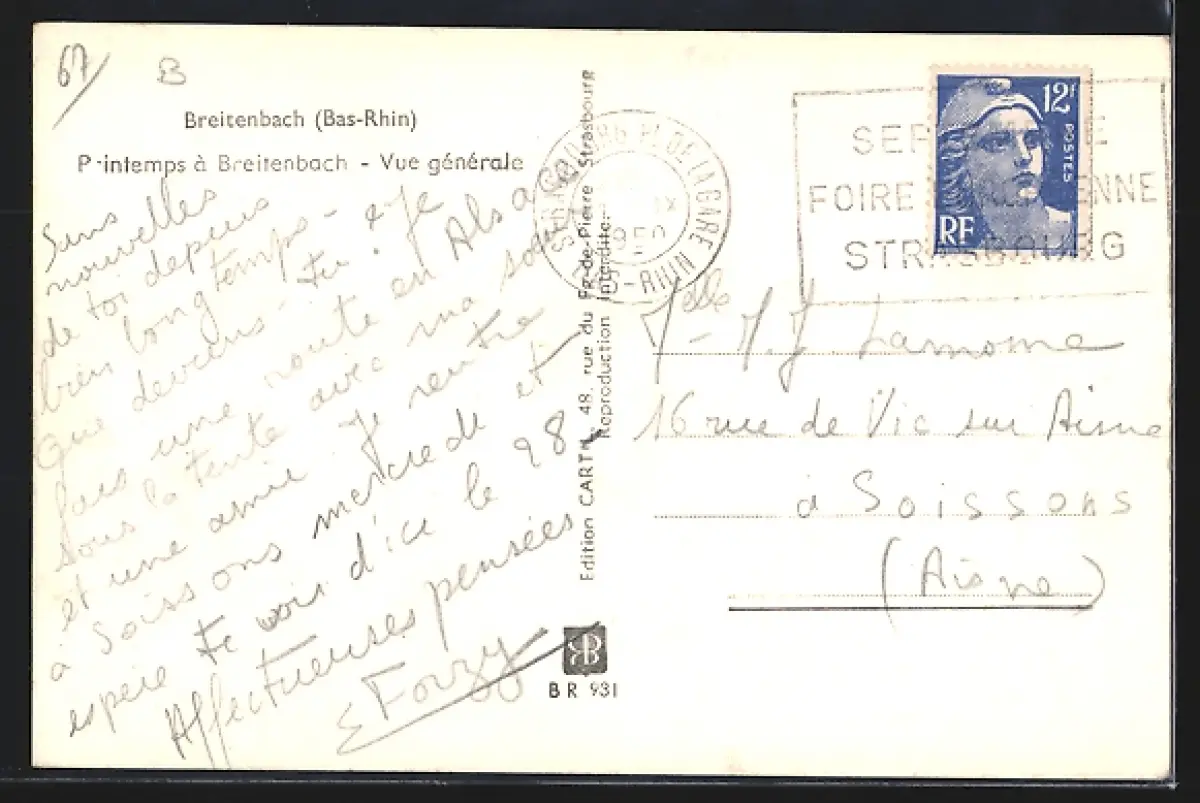 67
B
Breitenbach (Bas-Rhin)
Printemps à Breitenbach - Vue générale
Sans
nouvelles
de toi depuis
bien longtemps -
Que deviens-tu? Je
fais une route en Alsace
sous la tente avec ma soeur
et une amie. Je rentre
à Soissons mercredi et
espère te voir d'ici le 28.
Affectueuses pensées
E Forzy
Edition CART 48, rue du Fg-de-Pierre Strasbourg
Reproduction interdite
BR 931
STRASBOURG PL DE LA GARE
IX
1950
BAS-RHIN
12f
POSTES
RF
SEPTEMBRE
FOIRE EUROPEENNE
STRASBOURG
Melle M.J Lamome
16 rue de Vic sur Aisne
à Soissons
(Aisne)